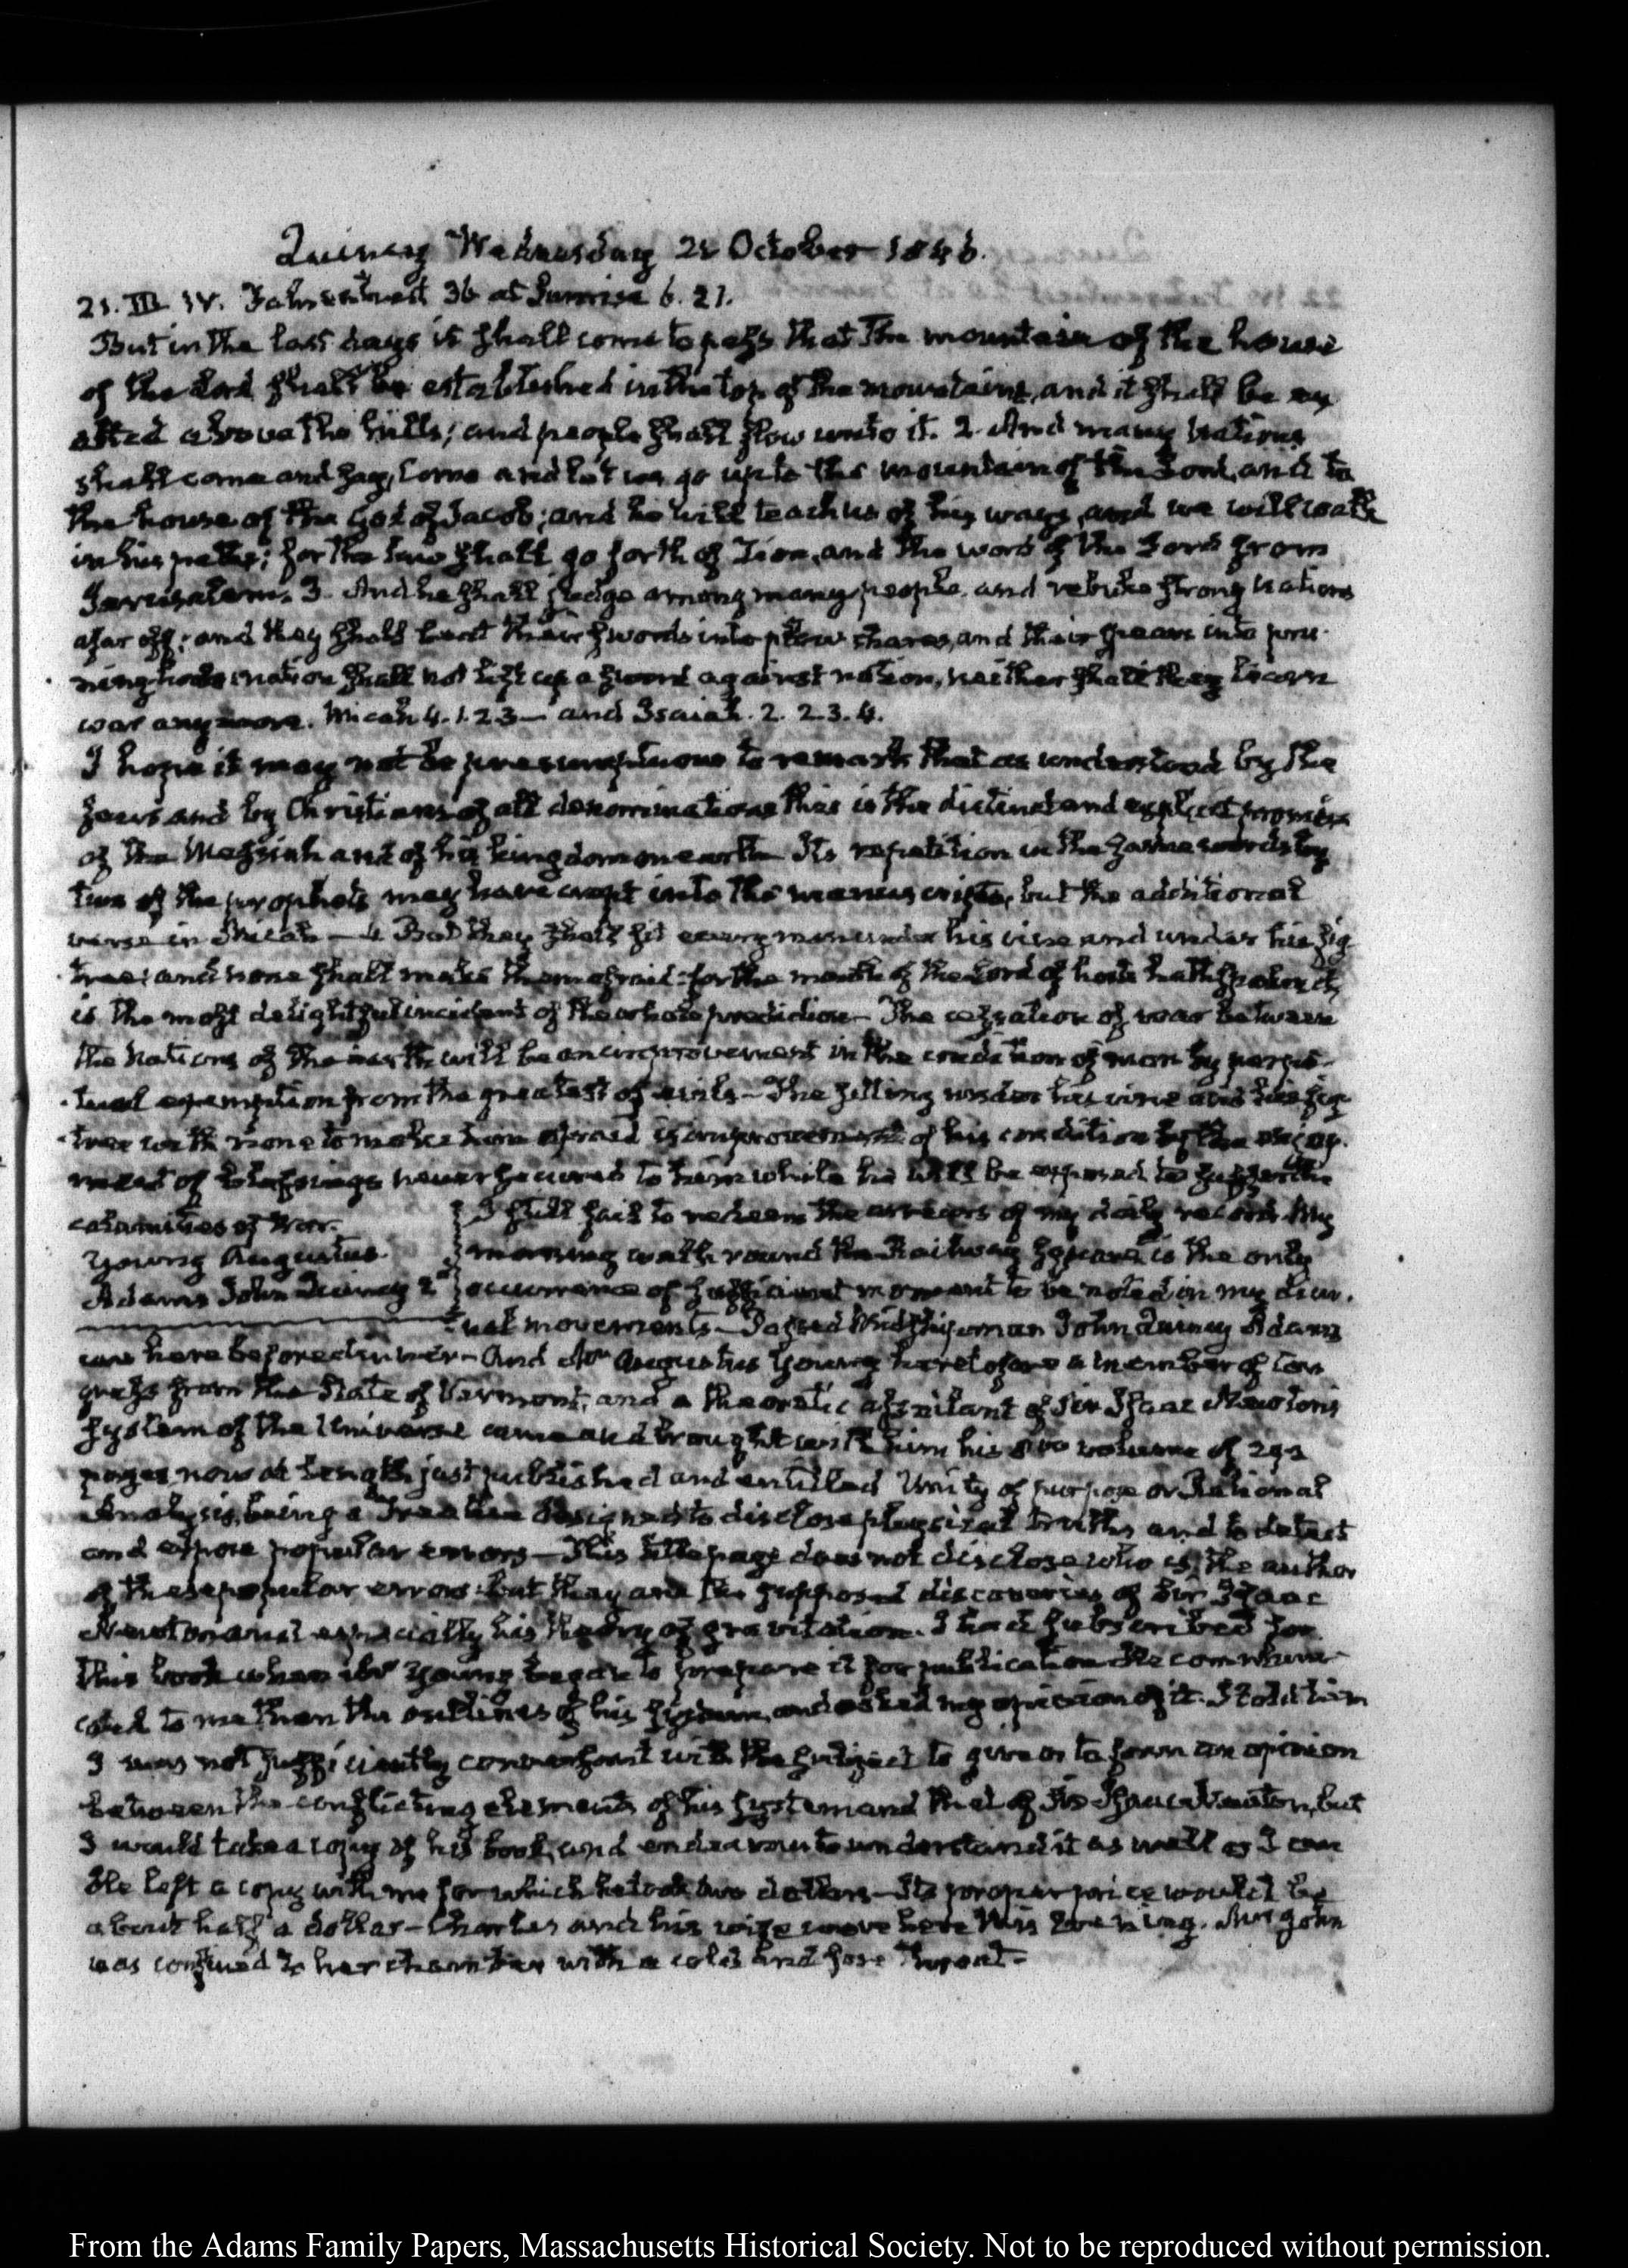 Quincy Wednesday 21 October 1846.
21. III. IV. Fahrenheit 36 at Sunrise 6.21.
But in the last days it shall come to pass that the mountain of the house
of the Lord shall be established in the top of the mountains, and it shall be ex
alted above the hills; and people shall flow unto it. 2. And many Nations
shall come and say, Come and let us go up to the mountain of the Lord, and to
the house of the God of Jacob; and he will teach us of his ways, and we will walk
in his paths; for the Law shall go forth of Zion, and the word of the Lord from
Jerusalem. 3. And he shall judge among many people, and rebuke strong Nations
afar off; and they shall beat their swords into plow shares, and their spears into pru-
ning hooks: nation shall not lift up a sword against nation, neither shall they learn
war any more. Micah 4. 1. 2. 3 — and Isaiah. 2. 2. 3. 4.
I hope it may not be presumptuous to remark that as understood by the
Jews and by Christians of all denominations this is the distinct and explicit promise
of the Messiah and of his kingdom on earth Its repetition in the same words by
two of the prophets may have crept into the manuscripts, but the additional
verse in Micah — 4 But they shall sit every man under his vine and under his fig
tree; and none shall make them afraid: for the mouth of the Lord of hosts hath spoken it,
is the most delightful incident of the whole prediction — The cessation of war between
the Nations of the earth will be an improvement in the condition of man by perpe-
tual exemption from the greatest of evils — The sitting under his vine and his fig-
tree with none to make him afraid is improvement of his condition by the enjoy-
ment of blessings never secured to him while he will be exposed to suffer the
calamities of War.
Young Augustus
Adams John Quincy 2d
I still fail to redeem the arrears of my daily record. My
morning walk round the Railway Square is the only
occurrence of sufficient moment to be noted in my diur-
nal movements — Passed Midshipman John Quincy Adams
was here before dinner — And Mr Augustus Young heretofore a member of Con
gress from the State of Vermont, and a theoretic assailant of Sir Isaac Newton's
System of the Universe came and brought with him his 8vo volume of 293
pages now at length just published and entitled Unity of purpose or Rational
Analysis, being a Treatise designed to disclose physical truths and to detect
and expose popular errors — This title page does not disclose who is the author
of these popular errors: but they are the supposed discoveries of Sir Isaac
Newton and especially his theory of gravitation. I had subscribed for
this book when Mr Young began to prepare it for publication He communi-
cated to me then the outlines of his system, and asked my opinion of it. I told him
I was not sufficiently conversant with the subject to give or to form an opinion
between the conflicting elements of his system and that of Sir Isaac Newton, but
I would take a copy of his book, and endeavour to understand it as well as I can
He left a copy with me for which he took two dollars — Its proper price would be
about half a dollar — Charles and his wife were here this Evening. Mrs John
was confined to her chamber with a cold and sore throat —
From the Adams Family Papers, Massachusetts Historical Society. Not to be reproduced without permission.